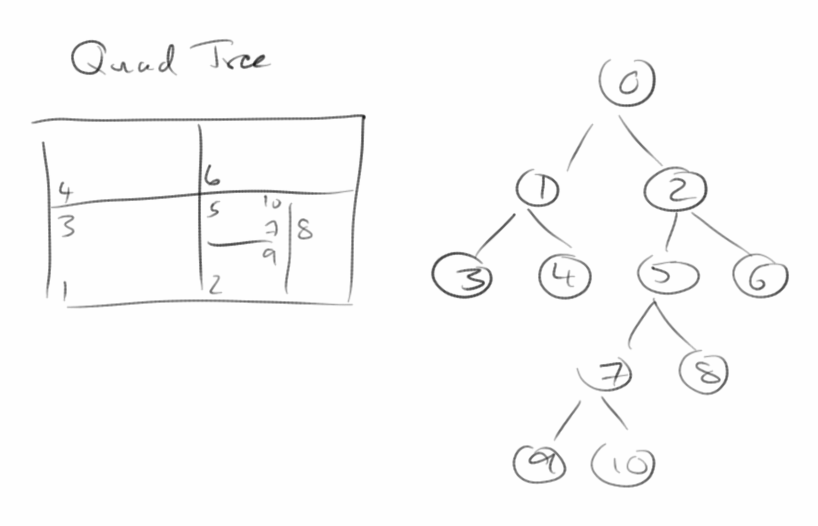 Quad Tree
4 6
3 5 10
7 8
9
1 2
0
1 2
3 4 5 6
7 8
9 10